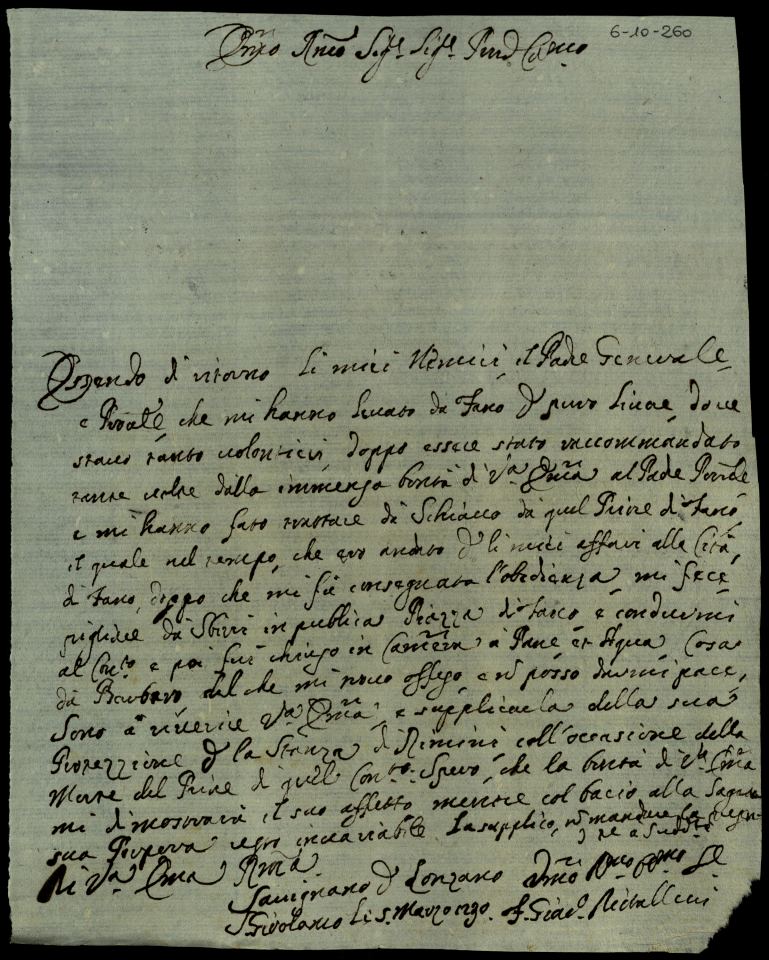 6-10-260
Em̃o Rm̃o Sig.r Sig.r Pr̃on Col.mo
Essendo di ritorno li miei Nemici, il Padre Generale
e Pror̃ale che mi hanno levato da Fano p puro livore, dove
stavo tanto volontieri doppo essere stato raccommandato
tante volte dalla immensa bontà di V.ra Em̃a al Padre
e mi hanno fato trattare da Schiavo da quel Priore di Fano
il quale nel tempo, che ero andato p li miei affari alla Città
di Fano, doppo che mi fù consegnata l'obedienza mi fece
pigliare da Sbirri in publica Piazza di Fano e condurmi
al Con.to e poi fui chiuso in Camera a Pane et Aqua, Cosa
da Barbaro, del che mi trovo offeso, e nõ posso darmi pace,
Sono a riverire V.ra Em̃a, e supplicarla della sua
Protezzione p la Stanza di Rimini coll'occasione della
Morte del Priore di quel Con.to Spero, che la bontà di V.ra Em̃a
mi dimostrarà il suo affetto mentre col bacio alla Sagra
sua Porpora resto invariabile. La supplico, nõ mandare
Di V.ra Em̃a Rm̃a
Savignano p Lonzano
S. Girolamo li 5. Marzo 1730. F. Giac.o